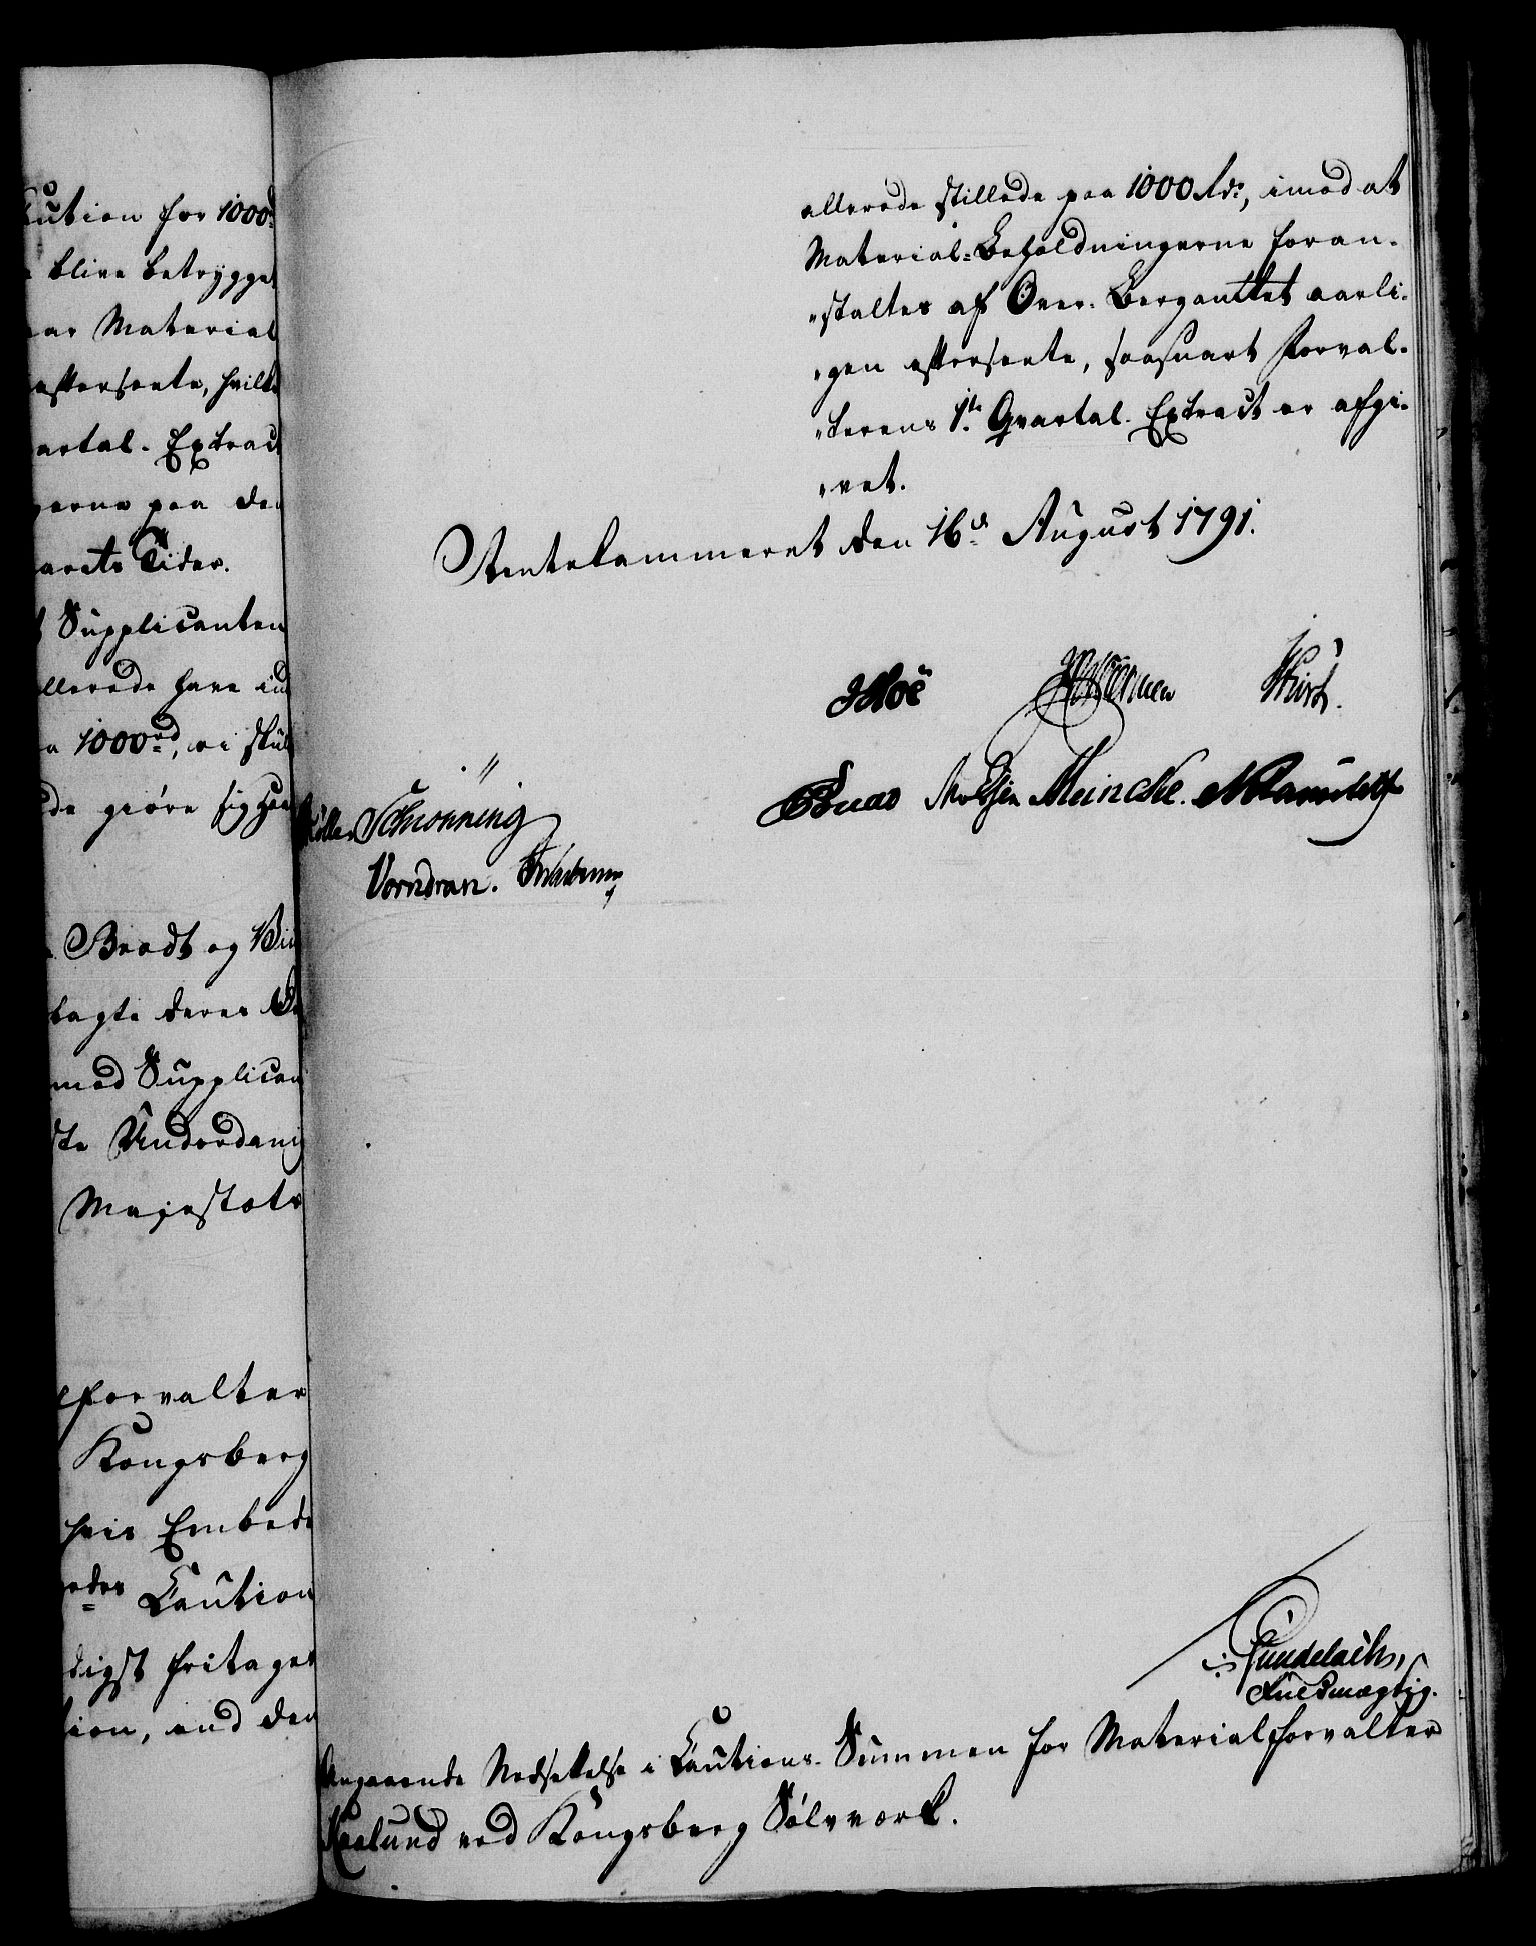 Caution for 1000
blive betrygge
Material
efterseete, hvilke
artal. Extract
gerne paa den
aarets Tider.
Supplicanten
allerede have ind
1000 rd, vi skul
de giøre sig
Bradt og
tagte deres
med Supplican
Underdanig
Majestæts
forvalter
Kongsberg
hvis Embede
Caution
digst fritages
tion, end den
allerede stillede paa 1000 Rdr, imod at
Material-Beholdningerne foran-
staltes af Over-Bergamtet aarli-
gen efterseete, saasnart Forval-
terens 1te Qvartal-Extract er afgi-
vet.
Rentekammeret den 16de August 1791.
Moe
Meincke.
Schiønning
Vorndran.
Gundelach,
Fuldmægtig.
Angaaende Nedsettelse i Cautions-Summen for Materialforvalter
Kaalund ved Kongsberg Sølvværk.